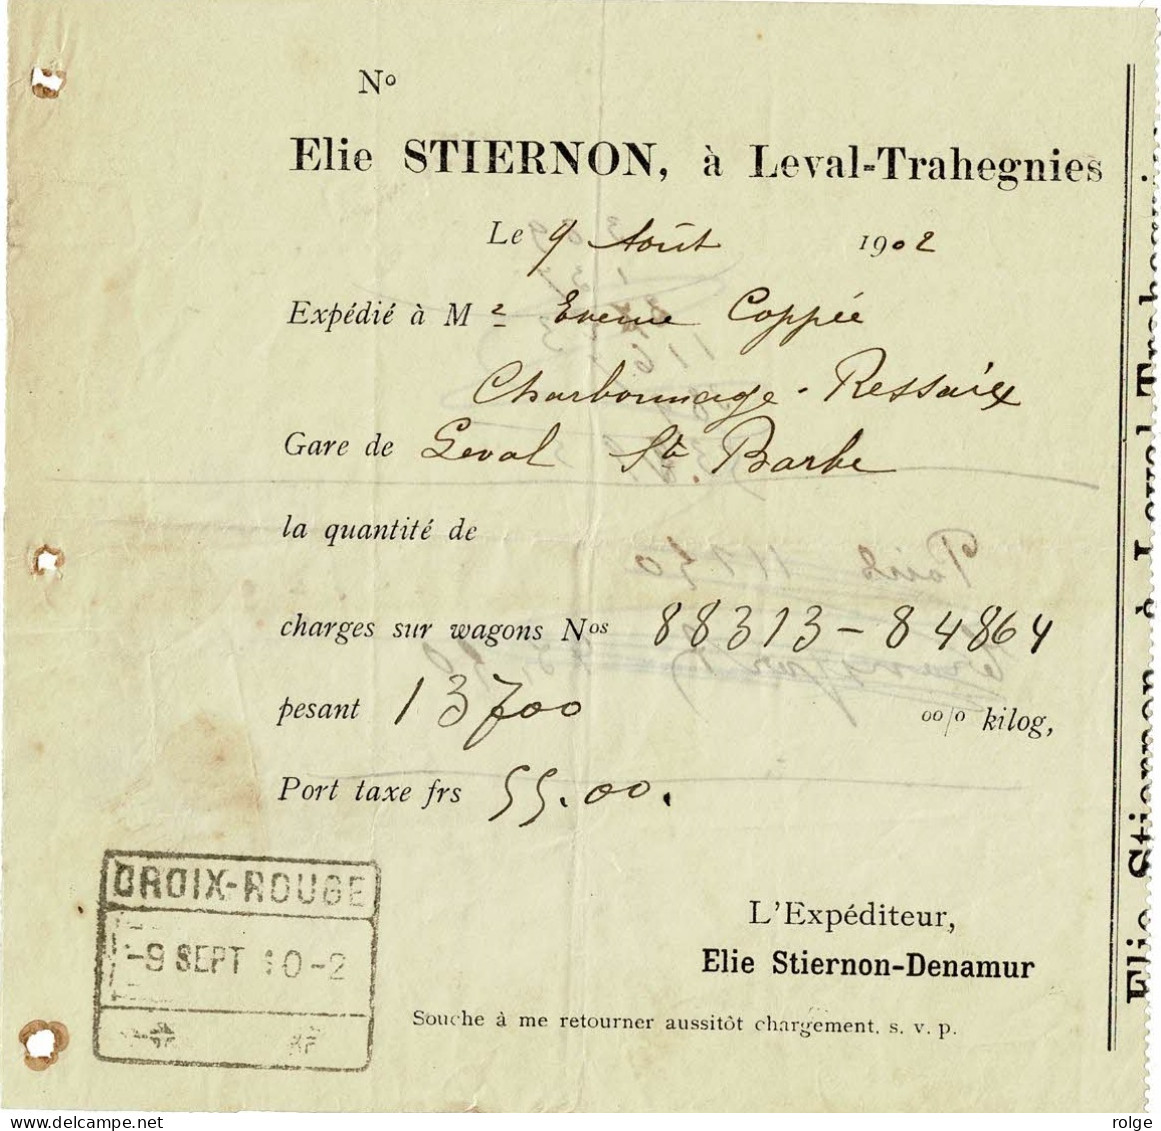 Nº
Elie STIERNON, à Leval-Trahegnies
Le 9 Août 1902
Expédié à Mr Evence Coppée
Charbonnage - Ressaix
Gare de Leval Ste Barbe
la quantité de
charges sur wagons Nos 88313 - 84864
pesant 13700 00/0 kilog,
Port taxe frs 55.00.
CROIX-ROUGE
-9 SEPT 10-2
L'Expéditeur,
Elie Stiernon-Denamur
Souche à me retourner aussitôt chargement. s. v. p.
Elie Stiernon à Leval-Trahegnies
delcampe.net
rolge